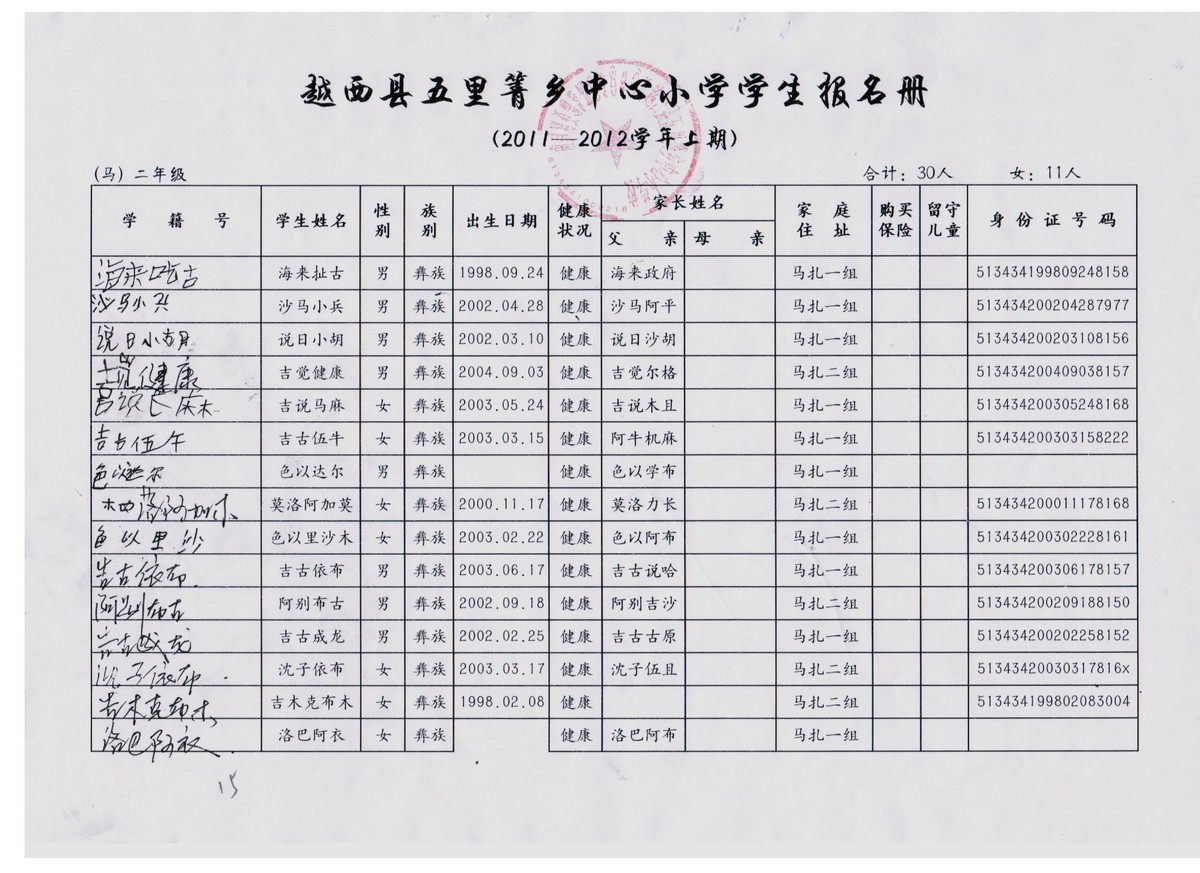 越西县五里箐乡中心小学学生报名册
(2011—2012学年上期)
(马) 二年级 合计: 30人 女: 11人
学籍号 学生姓名 性别 族别 出生日期 健康状况 家长姓名 父亲 母亲 家庭住址 购买保险 留守儿童 身份证号码
海来吡古 海来扯古 男 彝族 1998.09.24 健康 海来政府 马扎一组 513434199809248158
沙马小兵 沙马小兵 男 彝族 2002.04.28 健康 沙马阿平 马扎一组 513434200204287977
说日小胡 说日小胡 男 彝族 2002.03.10 健康 说日沙胡 马扎一组 513434200203108156
吉觉健康 吉觉健康 男 彝族 2004.09.03 健康 吉觉尔格 马扎二组 513434200409038157
吉说 麻木 吉说马麻 女 彝族 2003.05.24 健康 吉说木且 马扎一组 513434200305248168
吉古伍午 吉古伍牛 女 彝族 2003.03.15 健康 阿牛机麻 马扎一组 513434200303158222
色以达尔 色以达尔 男 彝族 健康 色以学布 马扎一组
木西洛阿加木 莫洛阿加莫 女 彝族 2000.11.17 健康 莫洛力长 马扎二组 513434200011178168
色以里沙 色以里沙木 女 彝族 2003.02.22 健康 色以阿布 马扎一组 513434200302228161
吉古依布. 吉古依布 男 彝族 2003.06.17 健康 吉古说哈 马扎一组 513434200306178157
阿别布古 阿别布古 男 彝族 2002.09.18 健康 阿别吉沙 马扎二组 513434200209188150
吉古成龙 吉古成龙 男 彝族 2002.02.25 健康 吉古古原 马扎一组 513434200202258152
沈子依布. 沈子依布 女 彝族 2003.03.17 健康 沈子伍且 马扎二组 51343420030317816x
吉木克布木 吉木克布木 女 彝族 1998.02.08 健康 马扎二组 513434199802083004
洛巴阿衣. 洛巴阿衣 女 彝族 健康 洛巴阿布 马扎一组
15